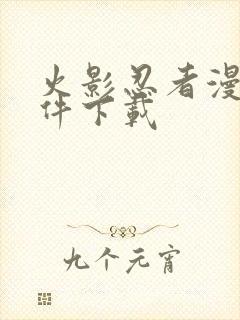 火影忍者漫
件下载
九个元宵